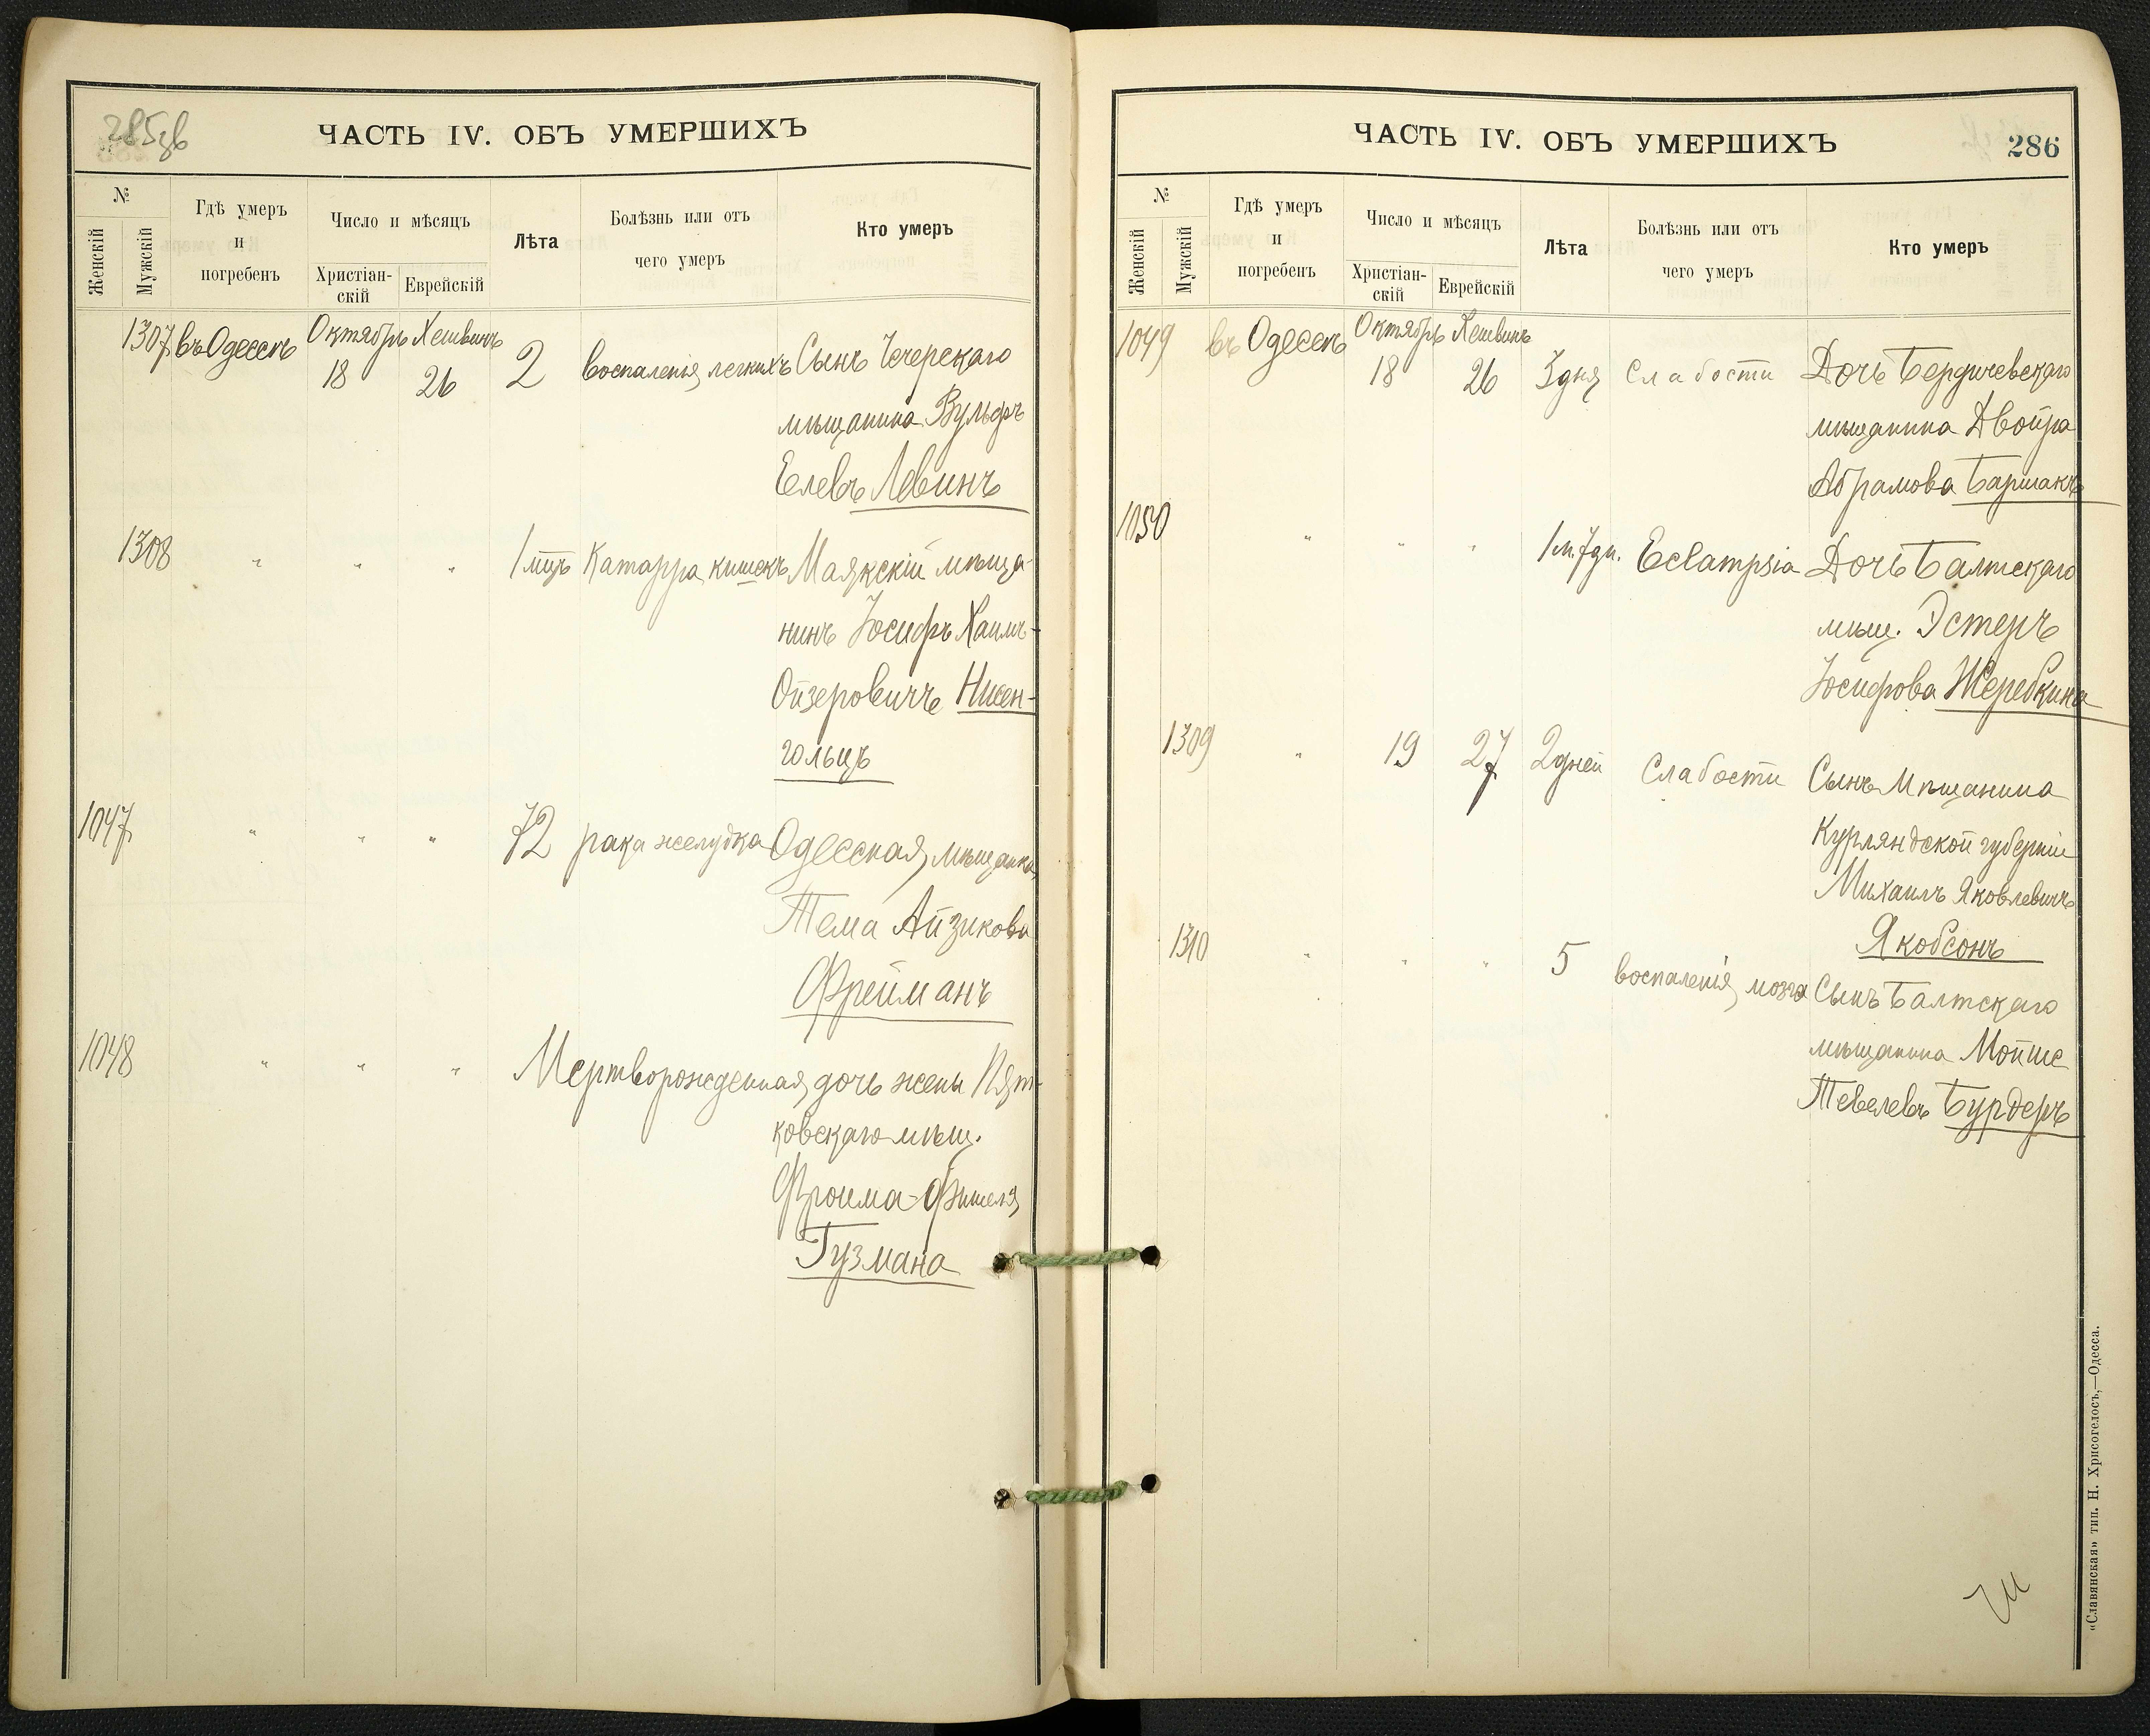 285об
ЧАСТЬ IV. ОБЪ УМЕРШИХЪ
№
Женскій
Мужскій
Гдѣ умеръ
и
погребенъ
Число и мѣсяцъ
Христіан-
скій
Еврейскій
Лѣта
Болѣзнь или отъ
чего умеръ
Кто умеръ
1307 въ Одессѣ Октябрь 18 Хешвинъ 26 2 воспаленія легкихъ Сынъ Чечерскаго
мѣщанина Вульфъ
Елевъ Левинъ
1308 " " " 1 мцъ Катарра кишекъ Маякскій мѣща-
нинъ Іосифъ Хаимъ-
Ойзеровичъ Нисен-
гольцъ
1047 " " " 72 рака желудка Одесская мѣщанка
Тема Айзикова
Фрейманъ
1048 " " " Мертворожденная дочь жены Пят-
ковскаго мѣщ.
Фроима-Фишеля
Гузмана
ЧАСТЬ IV. ОБЪ УМЕРШИХЪ
286
№
Женскій
Мужскій
Гдѣ умеръ
и
погребенъ
Число и мѣсяцъ
Христіан-
скій
Еврейскій
Лѣта
Болѣзнь или отъ
чего умеръ
Кто умеръ
1049 въ Одессѣ Октябрь 18 Хешвинъ 26 3 дня Слабости Дочь Бердичевскаго
мѣщанина Двойра
Абрамова Баршакъ
1050 " " " 1 м. 7 дн. Eclampsia Дочь Балтскаго
мѣщ. Эстеръ
Іосифова Жеребкина
1309 " 19 27 2 дней Слабости Сынъ Мѣщанина
Курляндской губерніи
Михаилъ Яковлевичъ
Якобсонъ
1310 " " " 5 воспаленія мозга Сынъ Балтскаго
мѣщанина Мойше
Тевелевъ Бурдеръ
«Славянская» тип. Н. Хрисогелосъ,—Одесса.